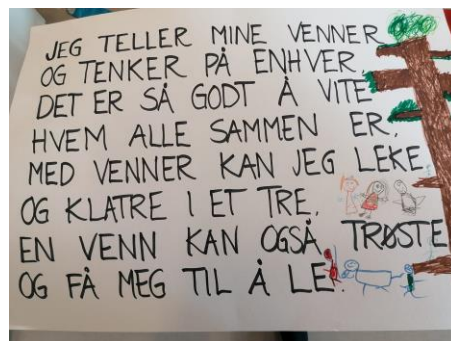 JEG TELLER MINE VENNER
OG TENKER PÅ ENHVER.
DET ER SÅ GODT Å VITE
HVEM ALLE SAMMEN ER.
MED VENNER KAN JEG LEKE
OG KLATRE I ET TRE.
EN VENN KAN OGSÅ TRØSTE
OG FÅ MEG TIL Å LE.